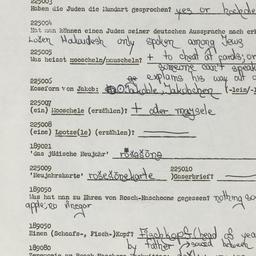 225003
Haben die Juden die Mundart gesprochen? yes or
225004
Hat man können einen Juden seiner deutschen Aussprache nach
only spoken among Jews
225005
Was heisst mooscheln/mauscheln? + to cheat at cards; or
someone can't speak
225006 explains his way out
Koseform von Jakob: Jakobchen (-lein/-
225007
(ein) Mooschele (erzählen)? + oder maysele
225008
(eine) Lootze(le) (erzählen)?
189021
'das jüdische Neujahr'
225009 225010
'Neujahrskarte' Goserbrief?
189050
Was hat man zu Ehren von Rosch-Haschone gegessen? nothing
apple, vinegar
189050
Einen (Schaafs-, Fisch-)Kopf? Fischkopf (head of
by father saved between
189080